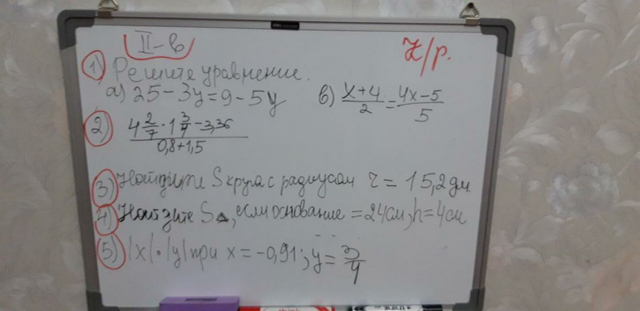 II-в
К/р.
1) Решите уравнение.
а) 25-3y=9-5y в) x+4/2=4x-5/5
2) 4 2/7·1 3/4-3,36/0,8+1,5
3) Найдите S круга с радиусом r=15,2 дм
4) Найдите S△, если основание=24см, h=4см
5) |x|·|y| при x=-0,91; y=3/4